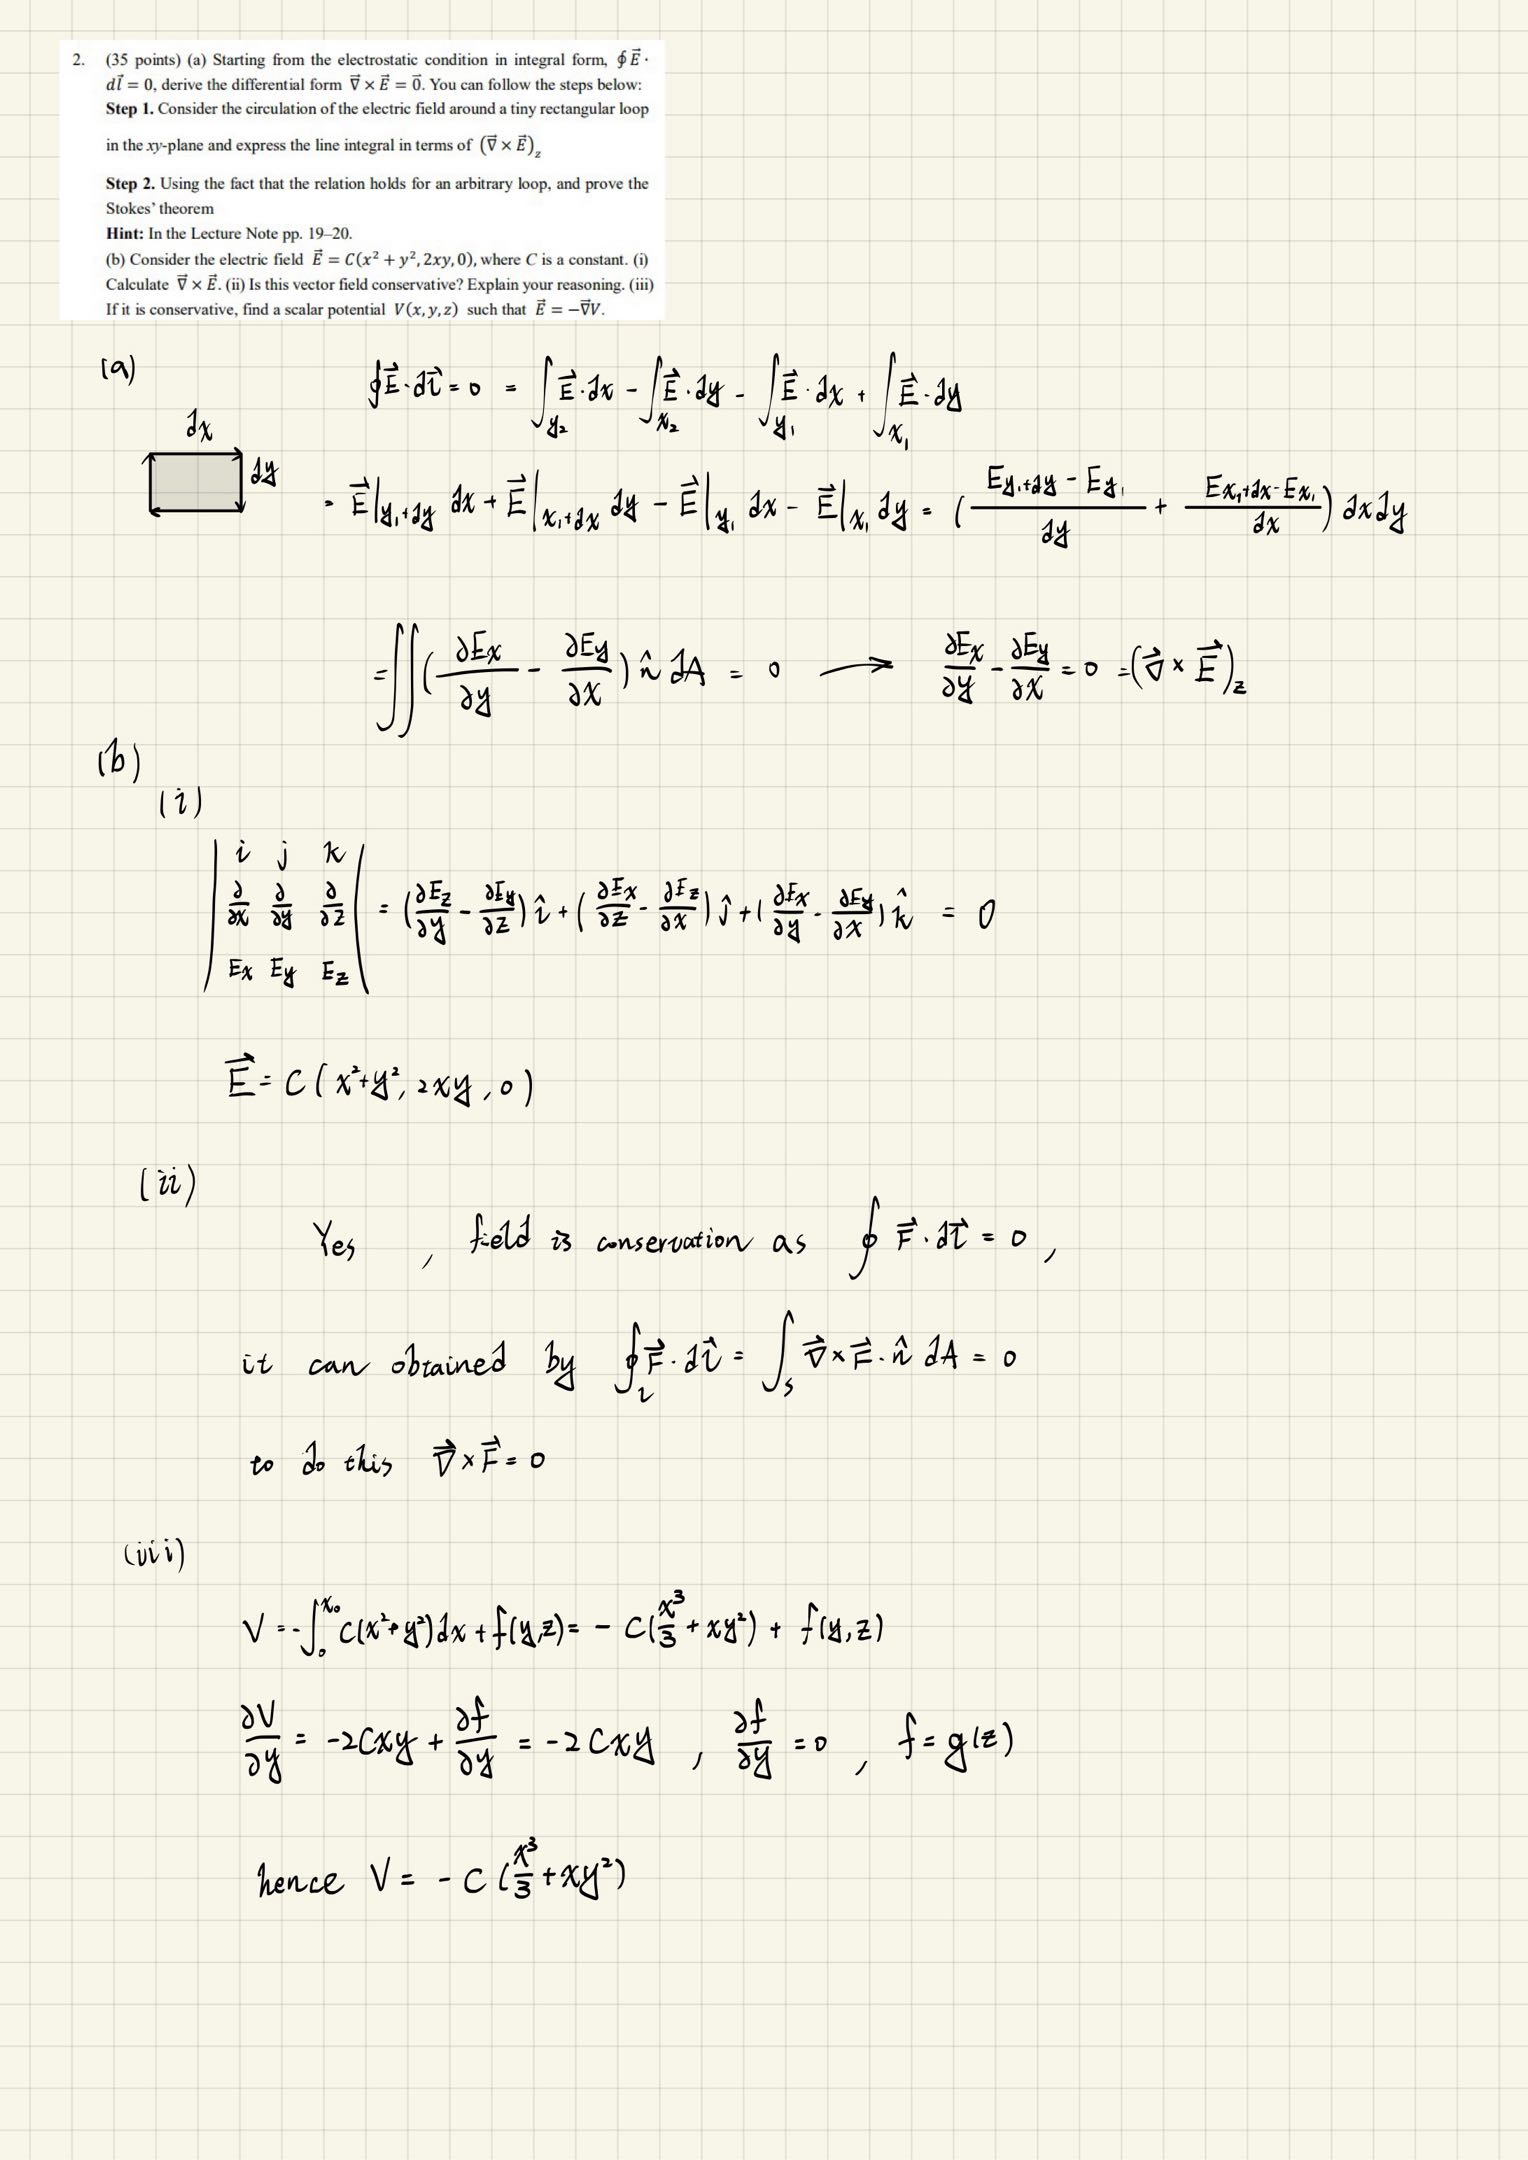 2. (35 points) (a) Starting from the electrostatic condition in integral form, ∮E⃗ ·
dl⃗ = 0, derive the differential form ∇⃗ × E⃗ = 0⃗. You can follow the steps below:
Step 1. Consider the circulation of the electric field around a tiny rectangular loop
in the xy-plane and express the line integral in terms of (∇⃗ × E⃗)_z
Step 2. Using the fact that the relation holds for an arbitrary loop, and prove the
Stokes’ theorem
Hint: In the Lecture Note pp. 19–20.
(b) Consider the electric field E⃗ = C(x² + y², 2xy, 0), where C is a constant. (i)
Calculate ∇⃗ × E⃗. (ii) Is this vector field conservative? Explain your reasoning. (iii)
If it is conservative, find a scalar potential V(x, y, z) such that E⃗ = −∇⃗V.
(a)
∮E⃗·dl⃗ = 0 = ∫_{y₂} E⃗·dx - ∫_{x₂} E⃗·dy - ∫_{y₁} E⃗·dx + ∫_{x₁} E⃗·dy
dx
dy
= E⃗|_{y₁+dy} dx + E⃗|_{x₁+dx} dy - E⃗|_{y₁} dx - E⃗|_{x₁} dy = ( (E_{y₁+dy} - E_{y₁})/dy + (E_{x₁+dx} - E_{x₁})/dx ) dxdy
= ∬(∂Ex/∂y - ∂Ey/∂x) n̂ dA = 0 ⟶ ∂Ex/∂y - ∂Ey/∂x = 0 = (∇⃗ × E⃗)_z
(b)
(i)
| i j k |
| ∂/∂x ∂/∂y ∂/∂z | = (∂Ez/∂y - ∂Ey/∂z) î + (∂Ex/∂z - ∂Ez/∂x) ĵ + (∂Ex/∂y - ∂Ey/∂x) k̂ = 0
| Ex Ey Ez |
E⃗ = C(x²+y², 2xy, 0)
(ii)
Yes , field is conservation as ∮ F⃗·dl⃗ = 0 ,
it can obtained by ∮_l F⃗·dl⃗ = ∫_s ∇⃗×F⃗·n̂ dA = 0
to do this ∇⃗×F⃗ = 0
(iii)
V = -∫₀^{x₀} C(x²+y²)dx + f(y,z) = - C(x³/3 + xy²) + f(y,z)
∂V/∂y = -2Cxy + ∂f/∂y = -2Cxy , ∂f/∂y = 0 , f = g(z)
hence V = - C (x³/3 + xy²)